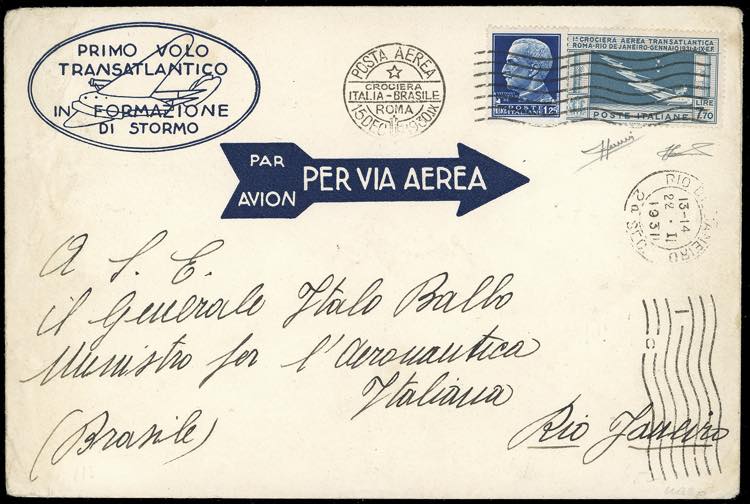 PRIMO VOLO
TRANSATLANTICO
IN FORMAZIONE
DI STORMO
POSTA AEREA
CROCIERA
ITALIA-BRASILE
ROMA
15 DEC 1930 IX
POSTE
ITALIANE
1,25
1ª CROCIERA AEREA TRANSATLANTICA
ROMA-RIO DE JANEIRO-GENNAIO 1931-A.IX-E.F.
POSTE ITALIANE
LIRE
7,70
PAR
AVION
PER VIA AEREA
RIO DE JANEIRO
13-14
22 . II
1931
2ª SEC
A S. E.
il Generale Italo Balbo
Ministro per l'Aeronautica
Italiana
(Brasile)
Rio Janeiro